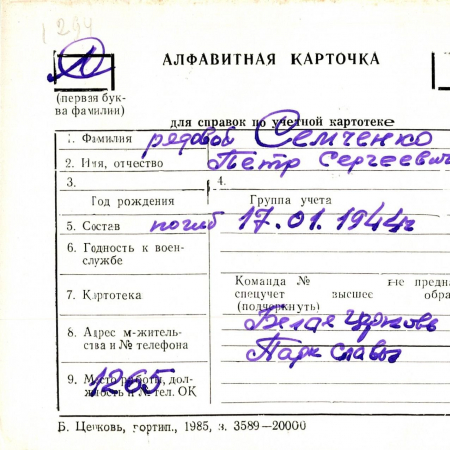 1 294
АЛФАВИТНАЯ КАРТОЧКА
(первая бук-
ва фамилии)
для справок по учетной картотеке
1. Фамилия рядовой Семченко
2. Имя, отчество Петр Сергеевич
3. 4.
Год рождения Группа учета
5. Состав погиб 17.01.1944г
6. Годность к воен-
службе
Команда № не предна
7. Картотека спецучет высшее обра
(подчеркнуть)
Белая Церковь
8. Адрес м-житель-
ства и № телефона
Парк Славы
9. Место работы, дол-
жность и № тел. ОК
1265
Б. Церковь, гортип., 1985, з. 3589—20000